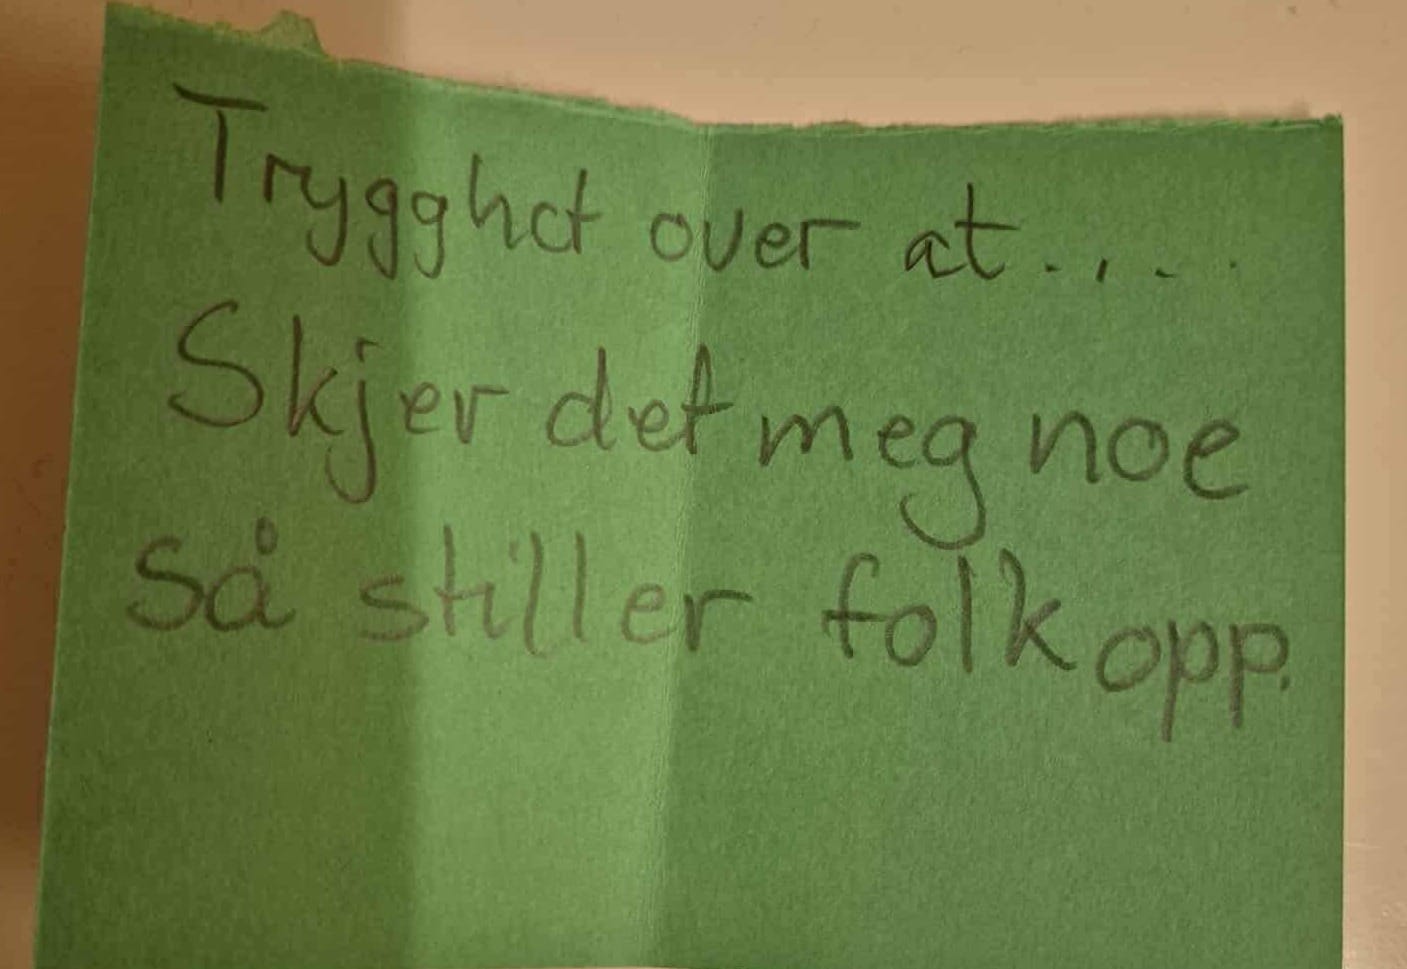 Trygghet over at....
Skjer det meg noe
så stiller folk opp.